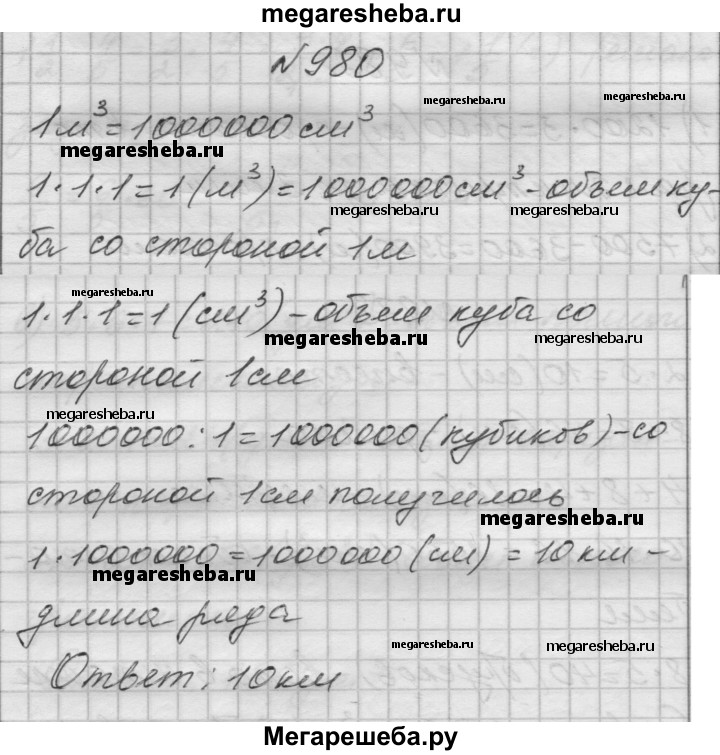 megaresheba.ru
№980
megaresheba.ru
megaresheba.ru
1м³=1000000см³
megaresheba.ru
1·1·1=1(м³)=1000000см³-объем ку-
megaresheba.ru
megaresheba.ru
ба со стороной 1м
megaresheba.ru
1·1·1=1(см³)-объем куба со
megaresheba.ru
megaresheba.ru
стороной 1см
megaresheba.ru
1000000:1=1000000(кубиков)-со
стороной 1см получилось
megaresheba.ru
1·1000000=1000000(см)=10км-
megaresheba.ru
длина ряда
megaresheba.ru
megaresheba.ru
Ответ: 10км
Мегарешеба.ру